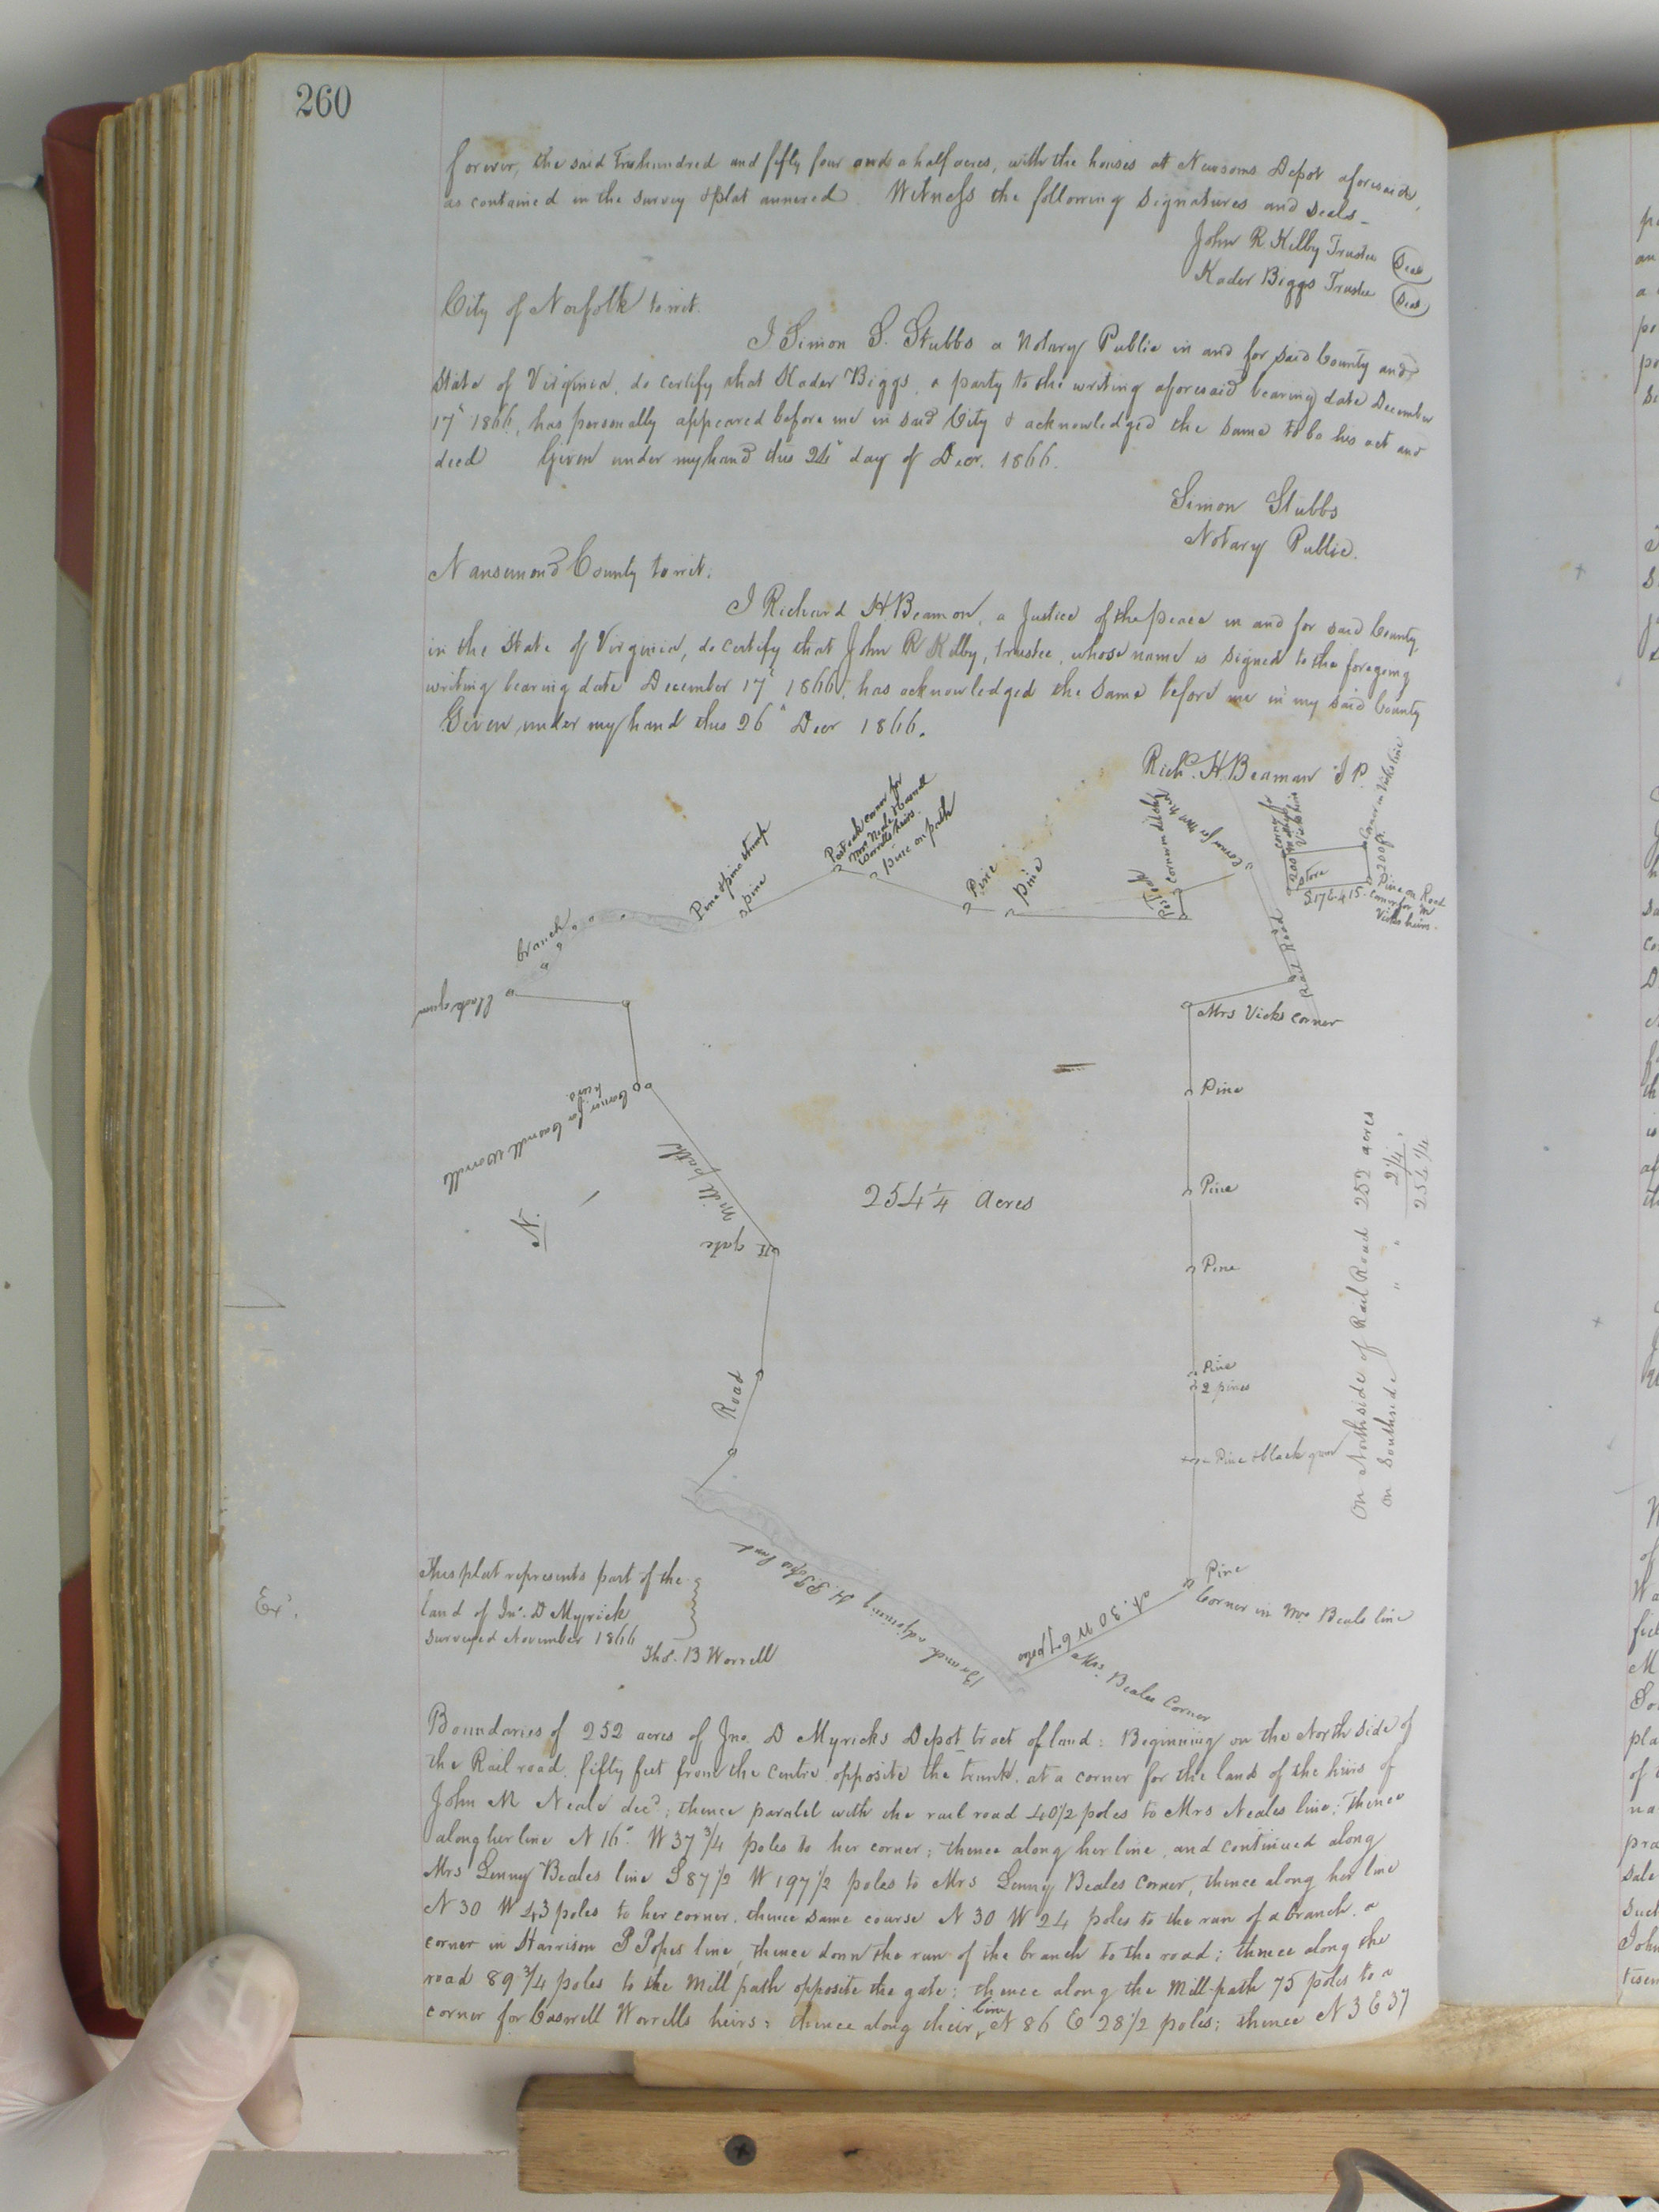 260
forever, the said Two hundred and fifty four and a half acres, with the houses at Newsoms Depot aforesaid,
as contained in the survey & plat annexed. Witness the following signatures and seals_
John R Kilby Trustee Seal
Kader Biggs Trustee Seal
City of Norfolk to wit.
I Simon S. Stubbs a Notary Public in and for said County and
State of Virginia, do certify that Kader Biggs, a party to the writing aforesaid bearing date December
17th 1866, has personally appeared before me in said City & acknowledged the same to be his act and
deed Given under my hand this 24th day of Decr. 1866.
Simon Stubbs
Notary Public.
Nansemond County to wit.
I Richard H Beamon, a Justice of the peace in and for said County,
in the State of Virginia, do certify that John R Kilby, trustee, whose name is signed to the foregoing
writing bearing date December 17th 1866, has acknowledged the same before me in my said County
Given under my hand this 26th Decr 1866.
Richd. H. Beaman J P.
Pine & pine stump
pine
Post oak corner for
Mrs Neale & Caswell
Worrells heirs.
pine on path
Pine
Pine
Post oak
Corner on ditch
corner for
Vicks heirs
Corner in Vicks line
200 ft.
Store
S 17 E 415
Pine on Road
corner for M
Vicks heirs.
Rail Road
branch
black gum
Mrs Vicks corner
Corner for Caswell Worrells
heirs.
Mill path
gate
N.
254 1/4 Acres
Pine
Pine
Pine
Pine
2 pines
Pine & black gum
Road
On North side of Rail Road 252 acres
on Southside " " 2 1/4
254 1/4
Pine
Corner in Mrs Beals line
N. 30 W 67 poles
Mrs. Beales Corner
Branch adjoining H. P Popes land
This plat represents part of the
land of Jno. D Myrick
surveyed November 1866
Thos. B Worrell
Exd.
Boundaries of 252 acres of Jno. D Myricks Depot tract of land: Beginning on the North side of
the Rail road, fifty feet from the centre, opposite the trunk, at a corner for the lands of the heirs of
John M Neale decd; thence paralel with the rail road 40 1/2 poles to Mrs Neales line; thence
along her line N 16° W 37 3/4 poles to her corner; thence along her line, and continued along
Mrs Lenny Beales line S 87 1/2 W 197 1/2 poles to Mrs Lenny Beales corner, thence along her line
N 30 W 43 poles to her corner, thence same course N 30 W 24 poles to the run of a branch, a
corner in Harrison P Popes line, thence down the run of the branch to the road; thence along the
road 89 3/4 poles to the Mill path opposite the gate; thence along the Mill-path 75 poles to a
corner for Caswell Worrells heirs; thence along their line N 86 E 28 1/2 poles; thence N 3 E 37